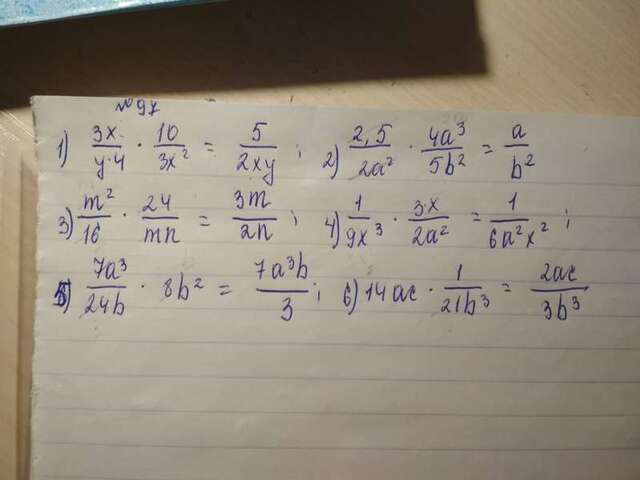 № 97
1) 3x/y·4 · 10/3x² = 5/2xy ; 2) 2,5/2a² · 4a³/5b² = a/b²
3) m²/16 · 24/mn = 3m/2n ; 4) 1/9x³ · 3x/2a² = 1/6a²x² ;
5) 7a³/24b · 8b² = 7a³b/3 ; 6) 14ac · 1/21b³ = 2ac/3b³